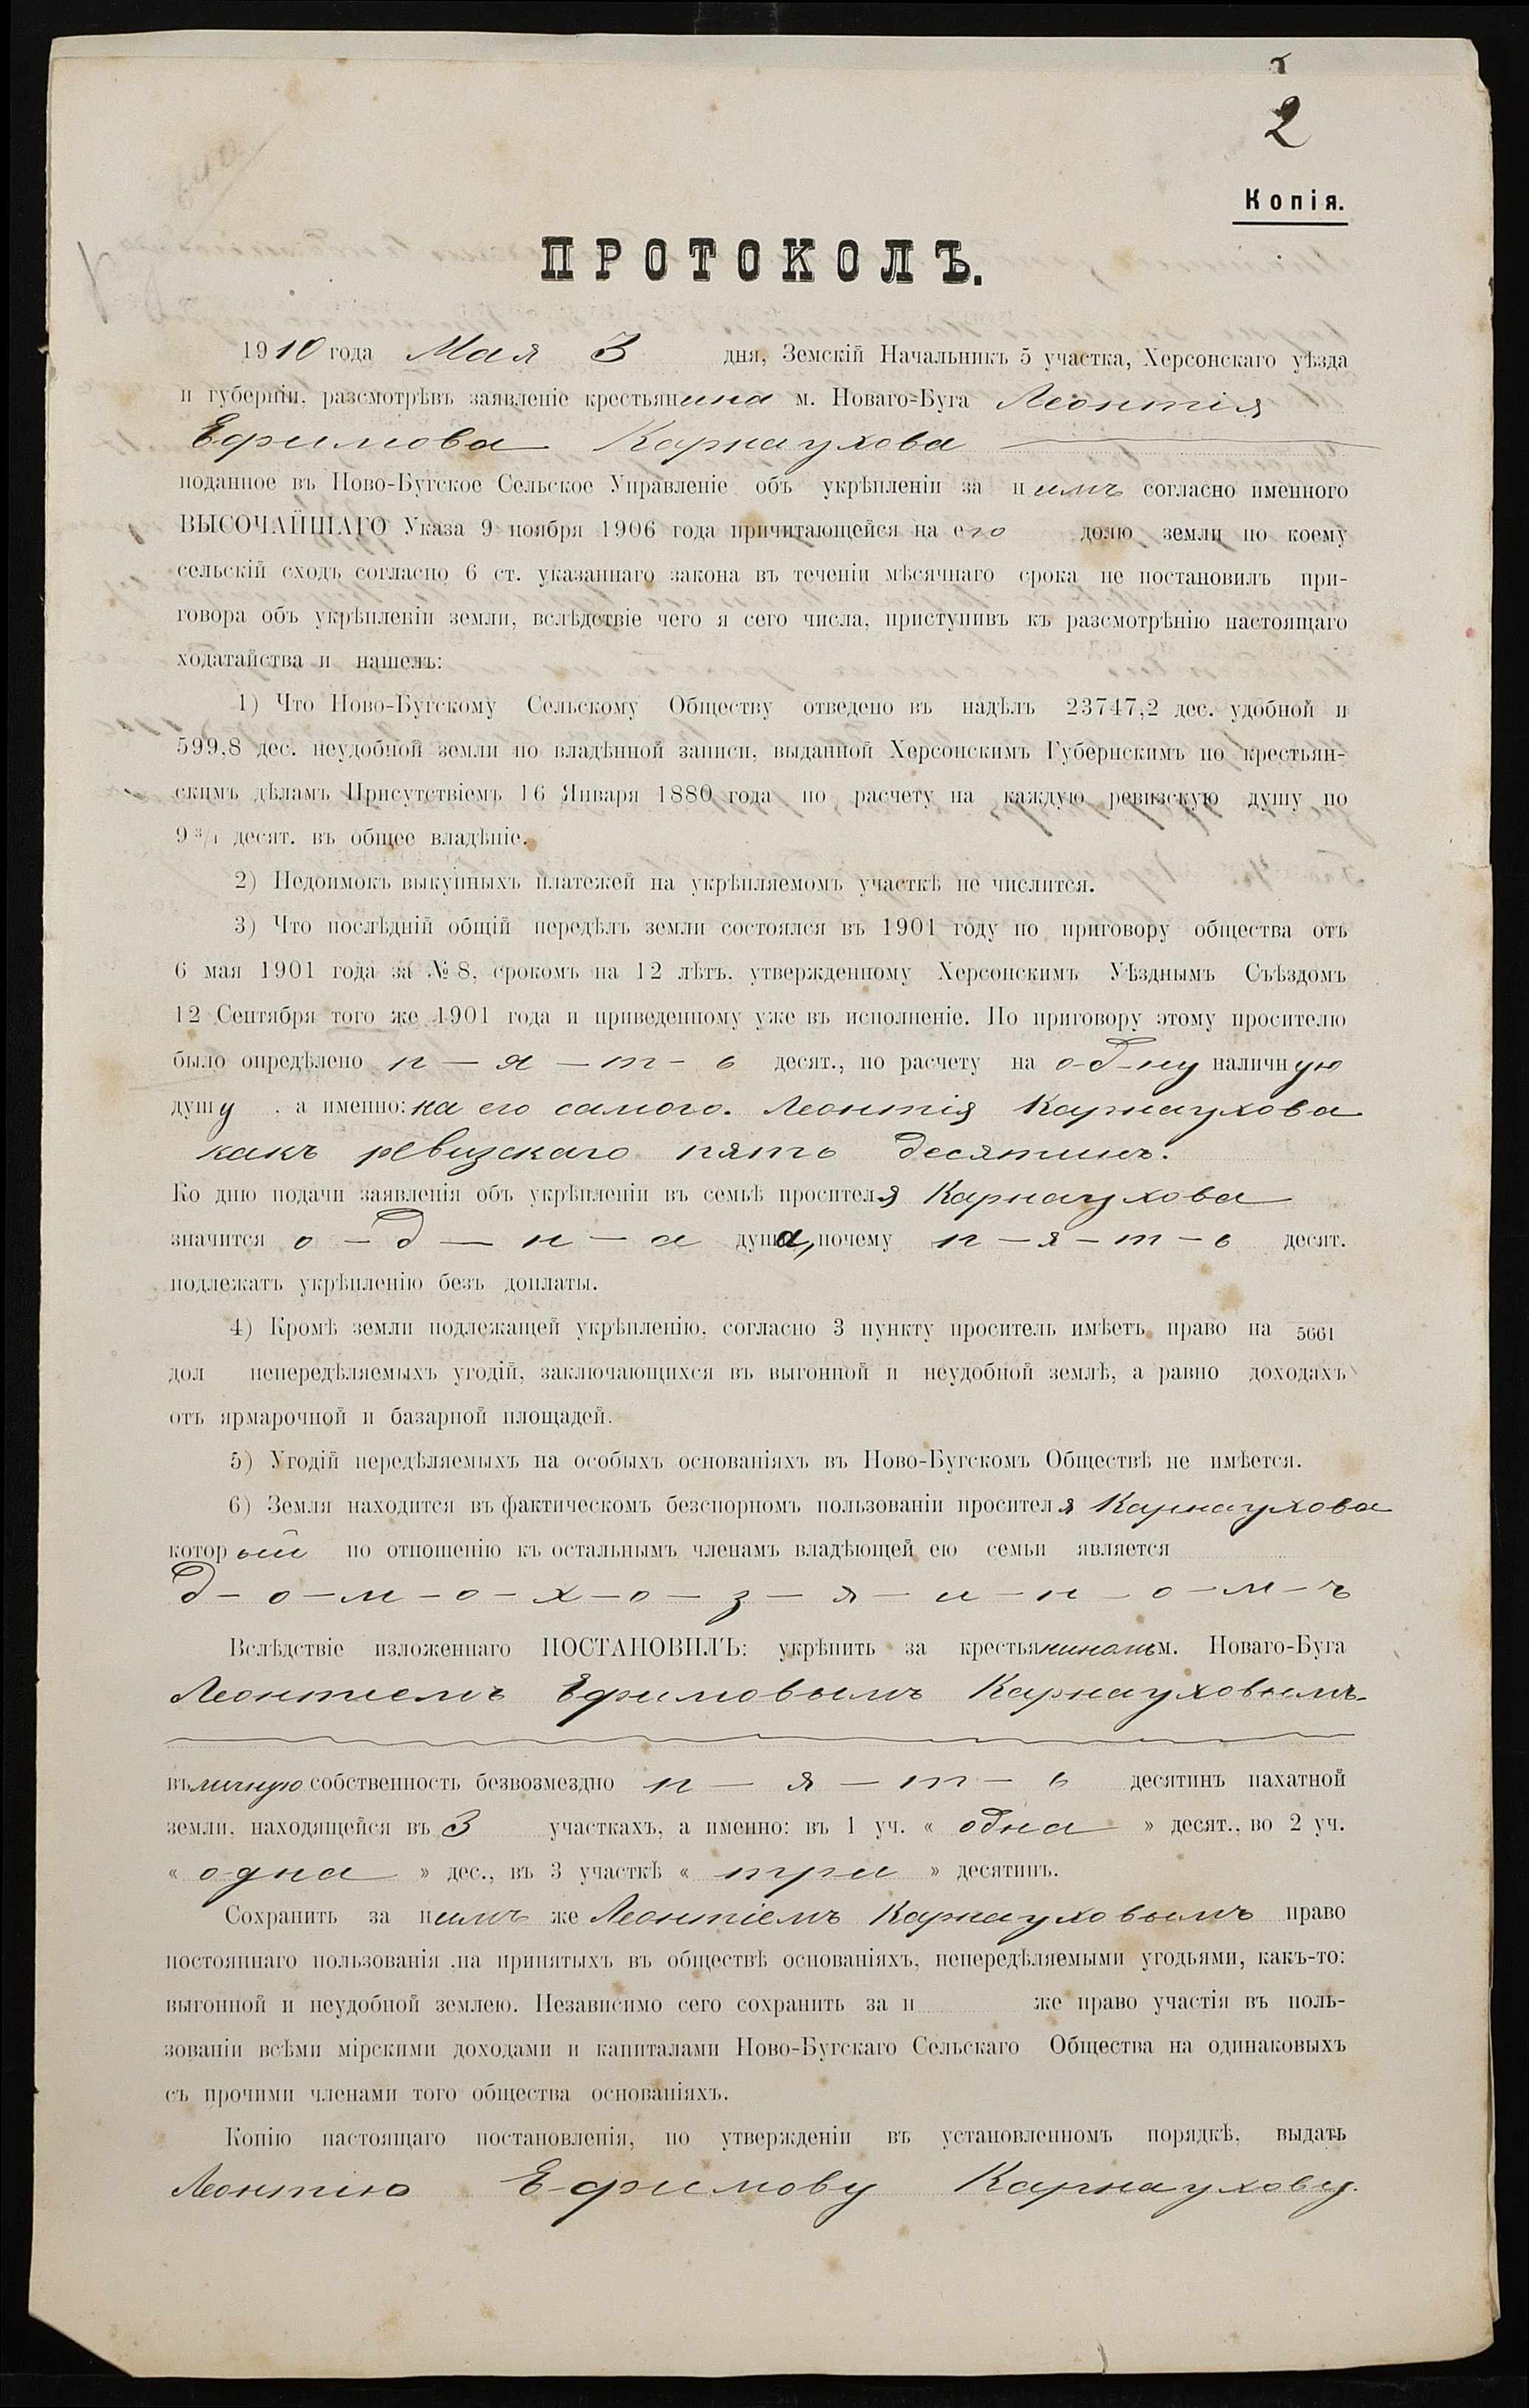 2
Копія.
ПРОТОКОЛЪ.
1910 года Мая 3 дня, Земскій Начальникъ 5 участка, Херсонскаго уѣзда
и губерніи, разсмотрѣвъ заявленіе крестьянина м. Новаго-Буга Леонтія
Ефимова Карнаухова
поданное въ Ново-Бугское Сельское Управленіе объ укрѣпленіи за нимъ согласно именного
ВЫСОЧАЙШАГО Указа 9 ноября 1906 года причитающейся на его долю земли по коему
сельскій сходъ согласно 6 ст. указаннаго закона въ теченіи мѣсячнаго срока не постановилъ при-
говора объ укрѣпленіи земли, вслѣдствіе чего я сего числа, приступивъ къ разсмотрѣнію настоящаго
ходатайства и нашелъ:
1) Что Ново-Бугскому Сельскому Обществу отведено въ надѣлъ 23747,2 дес. удобной и
599,8 дес. неудобной земли по владѣнной записи, выданной Херсонскимъ Губернскимъ по крестьян-
скимъ дѣламъ Присутствіемъ 16 Января 1880 года по расчету на каждую ревизскую душу по
9 3/4 десят. въ общее владѣніе.
2) Недоимокъ выкупныхъ платежей на укрѣпляемомъ участкѣ не числится.
3) Что послѣдній общій передѣлъ земли состоялся въ 1901 году по приговору общества отъ
6 мая 1901 года за № 8, срокомъ на 12 лѣтъ, утвержденному Херсонскимъ Уѣзднымъ Съѣздомъ
12 Сентября того же 1901 года и приведенному уже въ исполненіе. По приговору этому просителю
было опредѣлено п — я — т — ь десят., по расчету на о-д-ну наличную
душу , а именно: на его самого. Леонтія Карнаухова
какъ ревизскаго пять десятинъ.
Ко дню подачи заявленія объ укрѣпленіи въ семьѣ просителя Карнаухова
значится о — д — н — а душа, почему п — я — т — ь десят.
подлежатъ укрѣпленію безъ доплаты.
4) Кромѣ земли подлежащей укрѣпленію, согласно 3 пункту проситель имѣетъ право на 5661
дол непередѣляемыхъ угодій, заключающихся въ выгонной и неудобной землѣ, а равно доходахъ
отъ ярмарочной и базарной площадей.
5) Угодій передѣляемыхъ на особыхъ основаніяхъ въ Ново-Бугскомъ Обществѣ не имѣется.
6) Земля находится въ фактическомъ безспорномъ пользованіи просителя Карнаухова
который по отношенію къ остальнымъ членамъ владѣющей ею семьи является
д — о — м — о — х — о — з — я — и — н — о — м — ъ
Вслѣдствіе изложеннаго ПОСТАНОВИЛЪ: укрѣпить за крестьяниномъ м. Новаго-Буга
Леонтіемъ Ефимовымъ Карнауховымъ
въ личную собственность безвозмездно п — я — т — ь десятинъ пахатной
земли, находящейся въ 3 участкахъ, а именно: въ 1 уч. « одна » десят., во 2 уч.
« одна » дес., въ 3 участкѣ « три » десятинъ.
Сохранить за нимъ же Леонтіемъ Карнауховымъ право
постояннаго пользованія на принятыхъ въ обществѣ основаніяхъ, непередѣляемыми угодьями, какъ-то:
выгонной и неудобной землею. Независимо сего сохранить за н же право участія въ поль-
зованіи всѣми мірскими доходами и капиталами Ново-Бугскаго Сельскаго Общества на одинаковыхъ
съ прочими членами того общества основаніяхъ.
Копію настоящаго постановленія, по утвержденіи въ установленномъ порядкѣ, выдать
Леонтію Ефимову Карнаухову.